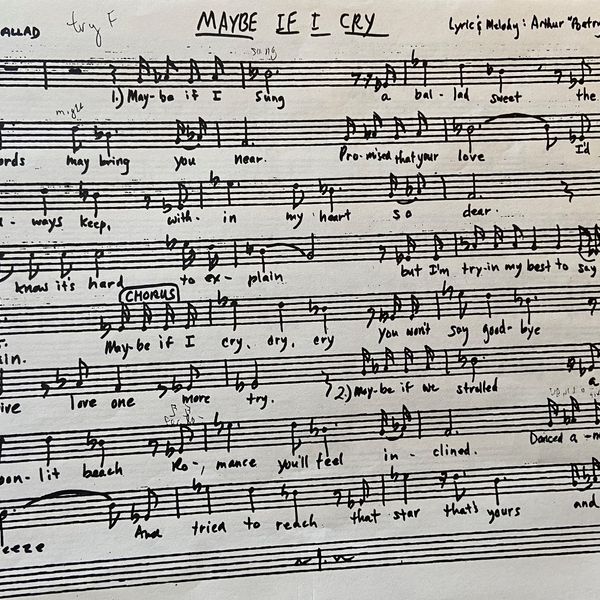 ALLAD try F MAYBE IF I CRY Lyric & Melody: Arthur "Poetry
song
1.) May-be if I sung a bal-lad sweet the
might
ords may bring you near. Pro-mised that your love I'd
- ways keep, with-in my heart so dear.
know it's hard to ex-plain but I'm try-in my best to say
CHORUS
in. May-be if I cry, cry, cry You won't say good-bye
ive love one more try. 2.) May-be if we strolled a
oon-lit beach Ro-, mance you'll feel in-clined. Danced a-
eeze And tried to reach that star that's yours and